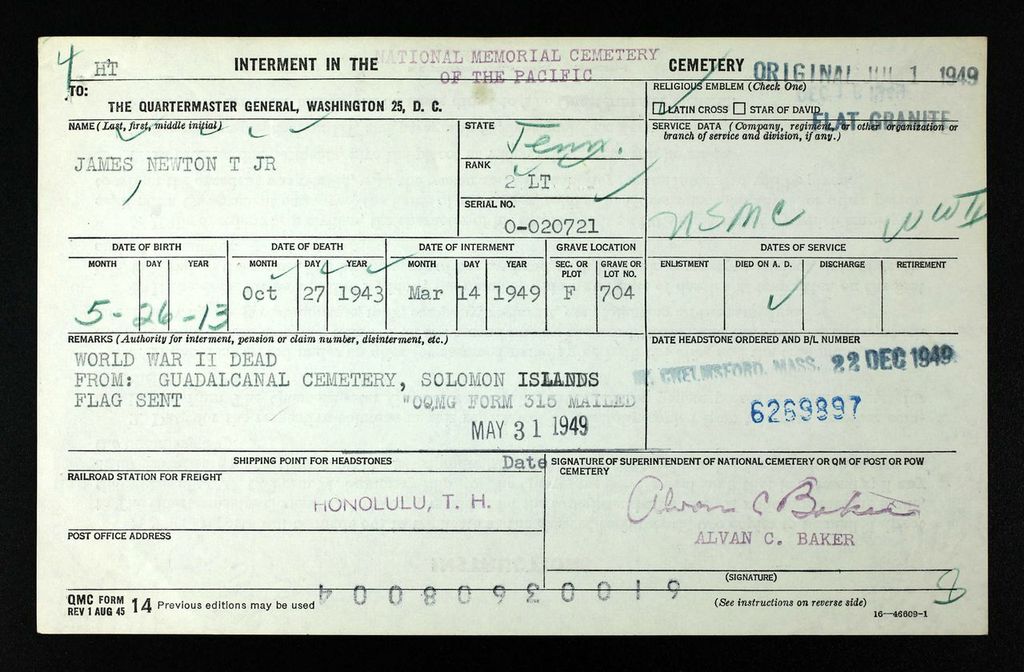 4
HT
INTERMENT IN THE NATIONAL MEMORIAL CEMETERY OF THE PACIFIC CEMETERY
ORIGINAL JUL 1 1949
TO:
THE QUARTERMASTER GENERAL, WASHINGTON 25, D. C.
RELIGIOUS EMBLEM (Check One)
LATIN CROSS STAR OF DAVID
FLAT GRANITE
NAME (Last, first, middle initial)
JAMES NEWTON T JR
STATE
Tenn.
RANK
2 LT
SERIAL NO.
O-020721
SERVICE DATA (Company, regiment, or other organization or
branch of service and division, if any.)
USMC WWII
DATE OF BIRTH
MONTH DAY YEAR
5-26-13
DATE OF DEATH
MONTH DAY YEAR
Oct 27 1943
DATE OF INTERMENT
MONTH DAY YEAR
Mar 14 1949
GRAVE LOCATION
SEC. OR PLOT GRAVE OR LOT NO.
F 704
DATES OF SERVICE
ENLISTMENT DIED ON A. D. DISCHARGE RETIREMENT
REMARKS (Authority for interment, pension or claim number, disinterment, etc.)
WORLD WAR II DEAD
FROM: GUADALCANAL CEMETERY, SOLOMON ISLANDS
FLAG SENT
"OQMG FORM 315 MAILED
MAY 31 1949
Date
DATE HEADSTONE ORDERED AND B/L NUMBER
W. CHELMSFORD, MASS. 22 DEC 1949
6269897
SHIPPING POINT FOR HEADSTONES
RAILROAD STATION FOR FREIGHT
HONOLULU, T. H.
POST OFFICE ADDRESS
SIGNATURE OF SUPERINTENDENT OF NATIONAL CEMETERY OR QM OF POST OR POW
CEMETERY
Alvan C Baker
ALVAN C. BAKER
(SIGNATURE)
QMC FORM
REV 1 AUG 45 14 Previous editions may be used
(See instructions on reverse side)
16—46609-1